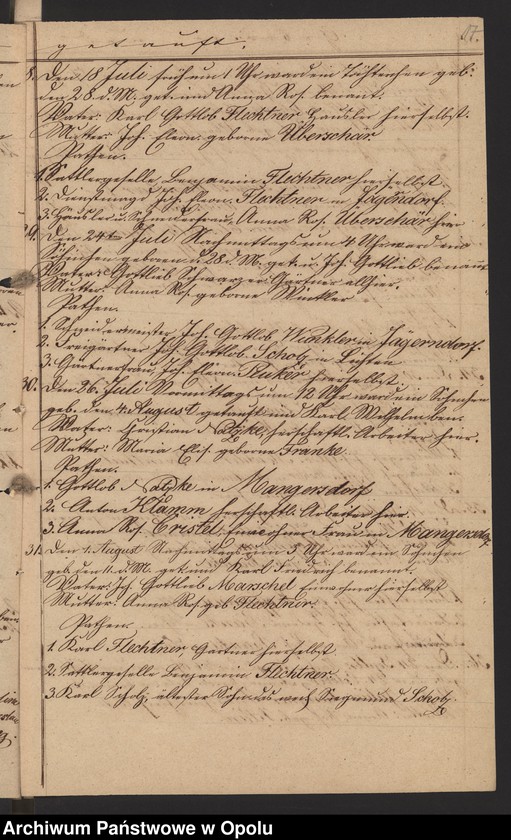 getauft.
17.
8. Den 18 Juli früh um 1 Uhr ward ein Töchterchen geb:
den 28. d. M. get. und Anna Ros. benant.
Vater: Karl Gottlob Flechtner Häusler hierselbst.
Mutter: Joh. Eleon. geborne Überschär.
Pathen.
1. Sattlergeselle Benjamin Flechtner hierselbst.
2. Dienstmagd Joh. Eleon. Flechtner in Jägendorf.
3. Häusler u. Frau Anna Ros. Überschär hier
29. Den 24ten Juli Nachmittags um 4 Uhr ward ein
Söhnchen geboren d. 28. d. M. get. u. Joh. Gottlieb benannt
Vater: Gottlieb Schwarzer Gärtner allhier.
Mutter: Anna Ros. geborne Winkler
Pathen.
1. Schneidermeister Joh. Gottlob Winkler in Jägerndorf.
2. Freigärtner Joh. Gottlob. Scholz in
3. Gärtnerfrau Joh. Eleon. hierselbst.
30. Den 26. Juli Vormittags um 12 Uhr ward ein Söhnchen
geb. den 4. August getauft und Karl Wilhelm ben.
Vater: Christian herrschaftl. Arbeiter hier.
Mutter: Maria Elis. geborne Franke
Pathen.
1. Gottlob in Mangersdorf
2. Anton Klamm herschaftl. Arbeiter hier
3. Anna Ros. Cristel, Frau in Mangersdorf
31. Den 1. August Nachmittags um 5 Uhr ward ein Söhnchen
geb. den 11. d. M. get. und Karl Friedrich benannt.
Vater: Joh. Gottlieb Marschel Einwohner hierselbst
Mutter: Anna Ros. geb Flechtner.
Pathen.
1. Karl Flechtner Gärtner hierselbst
2. Sattlergeselle Benjamin Flechtner.
3. Karl Scholz, ältester Sohn des Siegmund Scholz.
Archiwum Państwowe w Opolu